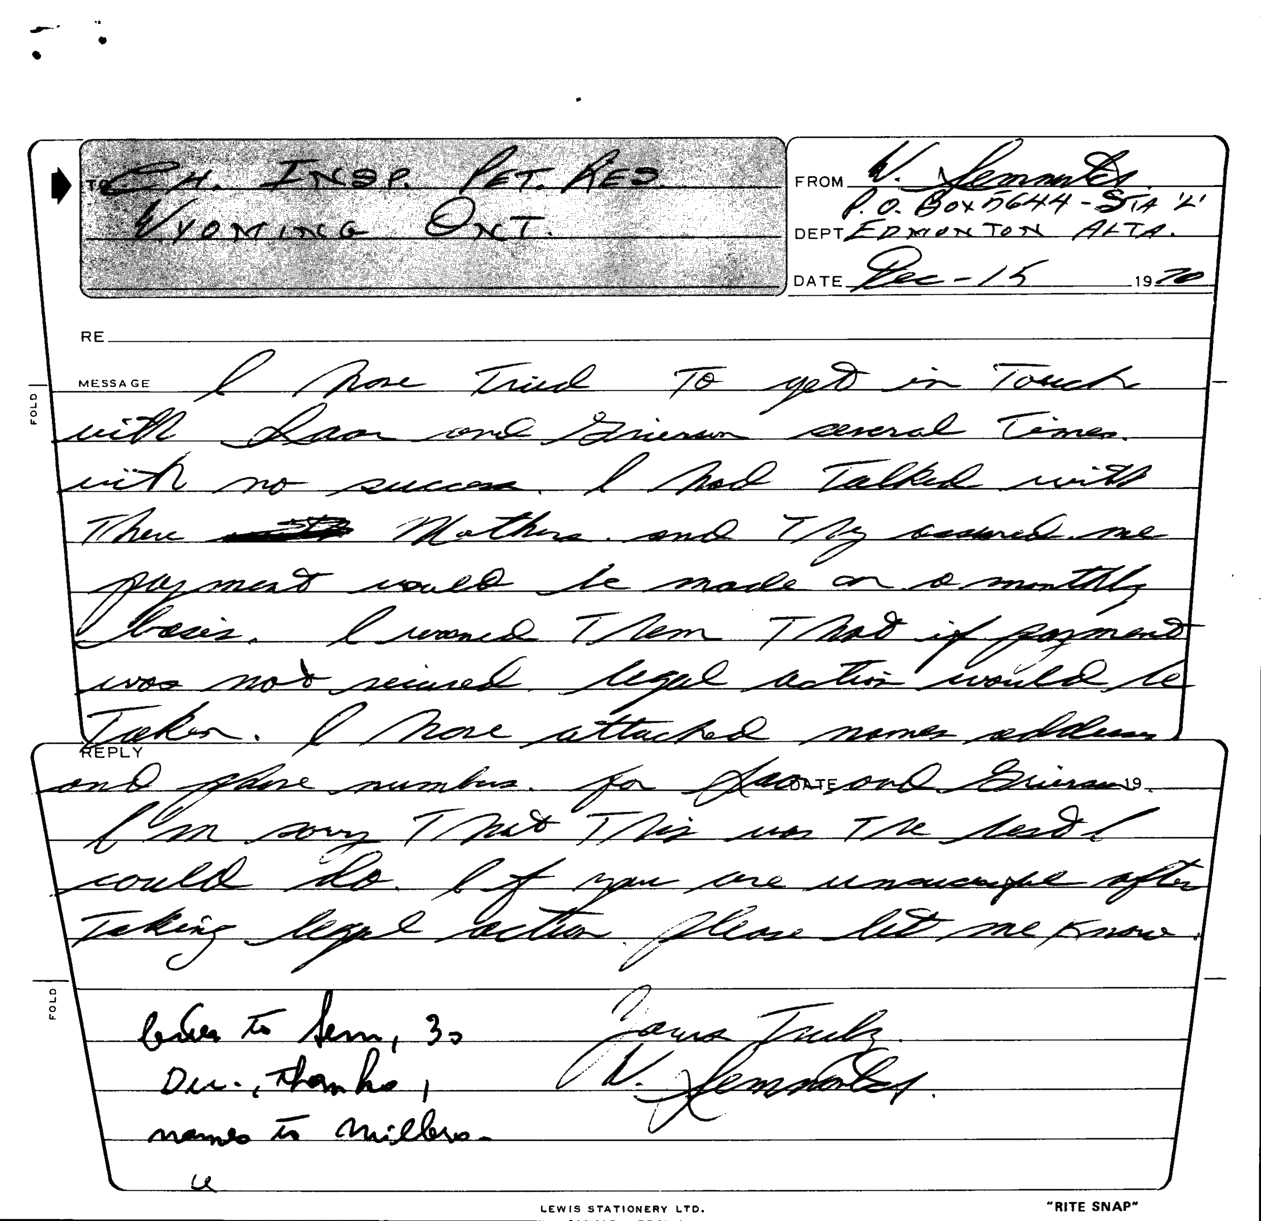 TO C.H. INSP. PET. RES.
WYOMING ONT.
FROM W.
P.O. BOX 5644 - STA 'L'
DEPT EDMONTON ALTA.
DATE Dec - 15 1970
RE
MESSAGE I have Tried To get in Touch
FOLD
with and Grierson several Times.
with no success. I had Talked with
There Mothers. and They assured me
payment would be made on a monthly
basis. I warned Them That if payment
was not recived legal action would be
Taken. I have attached names address
REPLY
and phone numbers. for and Grierson
DATE 19
I'm sorry That This was The best I
could do. If you are after
Taking legal action. please let me know.
FOLD
Yours Truly.
W.
letter to Sem, 30
Dec., Thanks,
names to Millers.
LEWIS STATIONERY LTD.
"RITE SNAP"